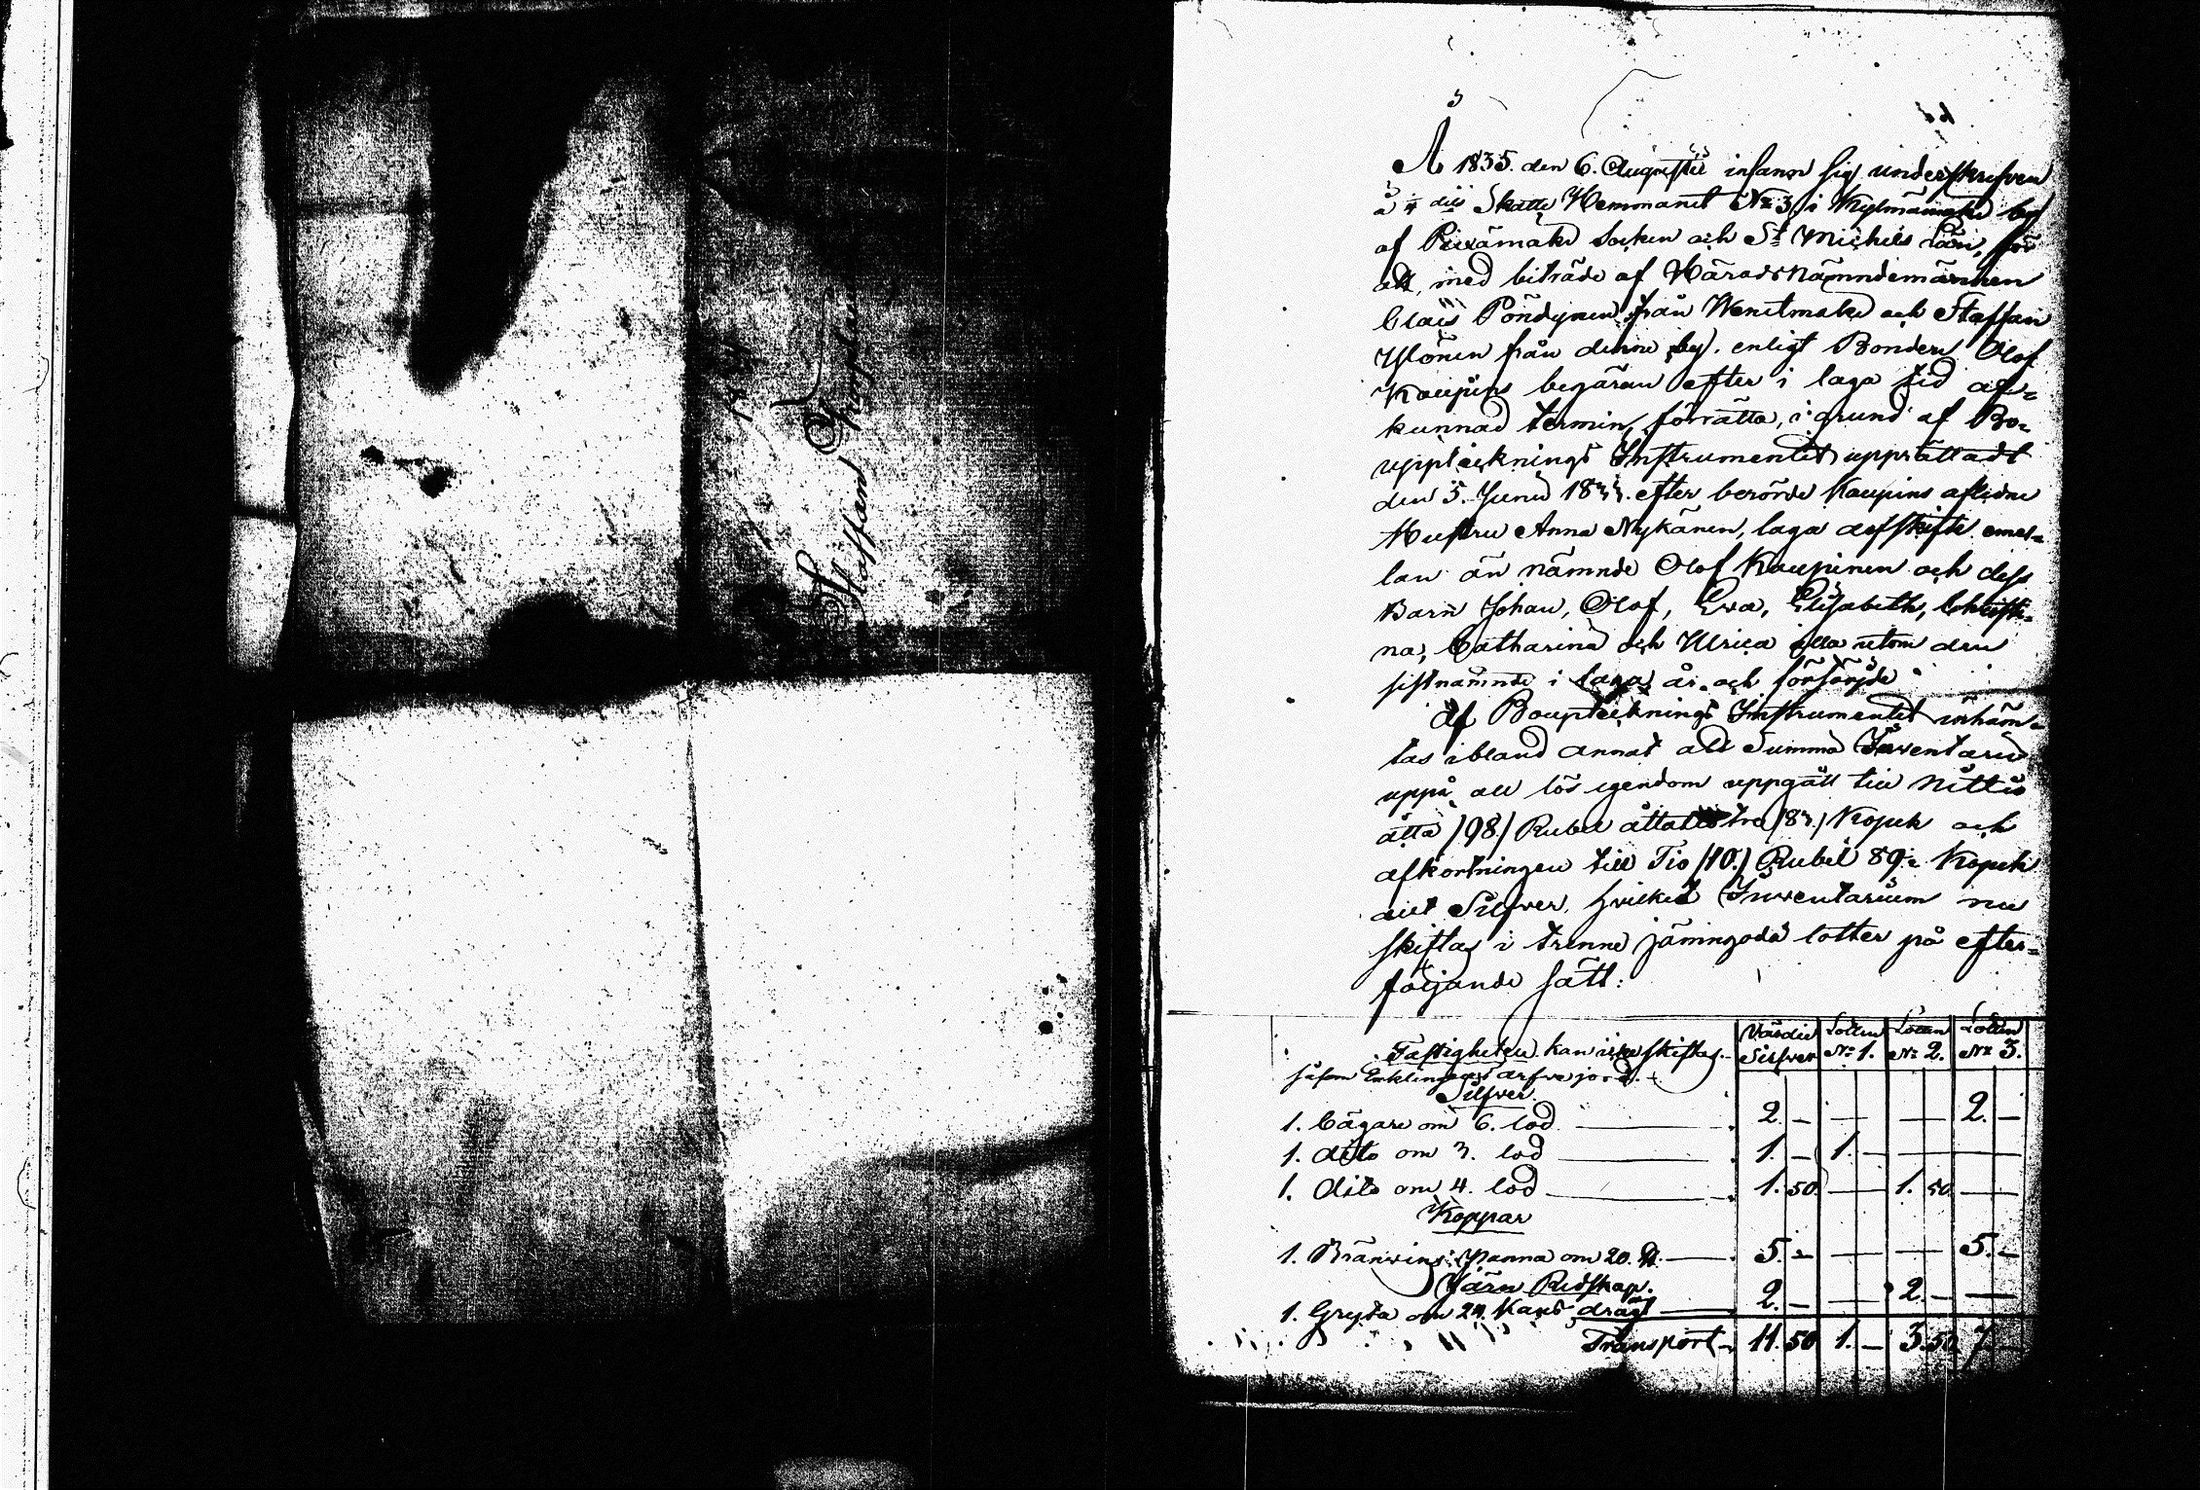 Staffan
År 1835. den 6. Augustii infann sig underskrifven
å 1/4 dels Skatte Hemmanet No 3, i Kylmämäki by
af Piexämäki Socken och St Michels Län, för
att, med biträde af Häradsnämndemännen
Claes Pöndynen från Wenetmäki och Staffan
Ylönen från denne by, enligt Bonden Olof
Kaupins begäran efter i laga tid af=
kunnad termin, förrätta, i grund af Bo=
upptecknings Instrumentet upprättadt
den 5. Junii 1833. efter berörde Kaupins aflidne
Hustru Anna Nykänen, laga arfskifte emel=
lan än nämnde Olof Kaupinen och dess
Barn Johan, Olof, Eva, Elisabeth, Christi=
na, Catharina och Ulrica alla utom den
sistnämnde i laga år och försörjde
Af Bouptecknings Instrumentet inhäm=
tas ibland annat att Summa Inventarii
uppå all lös egendom uppgått till nittio
åtta /98./ Rubel åttatio tre /83./ Kopek och
afkortningen till Tio /10./ Rubel 89. Kopek
allt Silfver, hvilket Inventarium nu
skiftas i trenne jämngoda lotter på efter=
följande sätt:
Värdie Lotten Lotten Lotten
Fastigheten kan icke skiftas Silfver No 1. No 2. No 3.
såsom Enklingens arfvejord.
Silfver.
1. bägare om 6. lod 2. — — — 2. —
1. dito om 3. lod 1. — 1. — — —
1. dito om 4. lod 1. 50. — 1. 50 —
Koppar
1. Bränvins panna om 20. 5. — — — 5. —
Järn Redskap.
1. Gryta om 24. Kans drägt 2. — — 2. — —
Transport 11. 50 1. — 3. 50 7. —